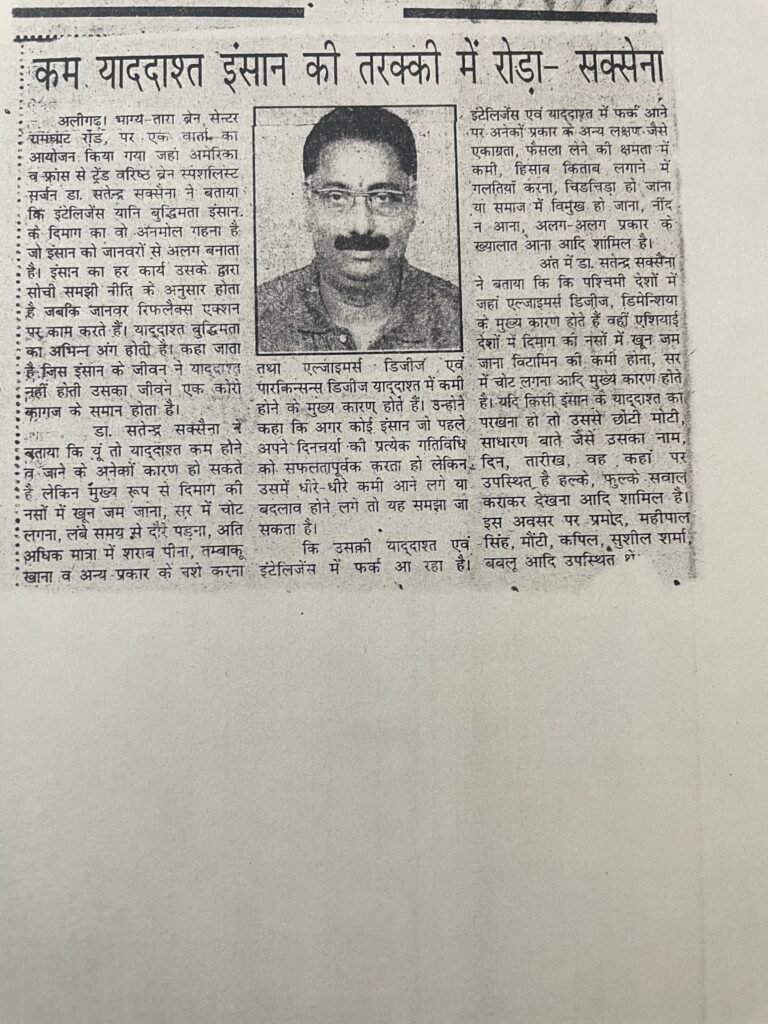 कम याददाश्त इंसान की तरक्की में रोड़ा- सक्सेना
अलीगढ़। भाग्य-तारा ब्रेन सेन्टर
रामघाट रोड, पर एक वार्ता का
आयोजन किया गया जहां अमेरिका
व फ्रांस से ट्रेंड वरिष्ठ ब्रेन स्पेशलिस्ट
सर्जन डा. सतेन्द्र सक्सैना ने बताया
कि इंटेलिजेंस यानि बुद्धिमता इंसान
के दिमाग का वो अनमोल गहना है
जो इंसान को जानवरों से अलग बनाता
है। इंसान का हर कार्य उसके द्वारा
सोची समझी नीति के अनुसार होता
है जबकि जानवर रिफलैक्स एक्शन
पर काम करते हैं। याददाश्त बुद्धिमता
का अभिन्न अंग होती है। कहा जाता
है जिस इंसान के जीवन ने याददाश्त
नहीं होती उसका जीवन एक कोरो
कागज के समान होता है।
डा. सतेन्द्र सक्सैना ने
बताया कि यूं तो याददाश्त कम होने
व जाने के अनेकों कारण हो सकते
है लेकिन मुख्य रूप से दिमाग की
नसों में खून जम जाना, सर में चोट
लगना, लंबे समय से दौरे पड़ना, अति
अधिक मात्रा में शराब पीना, तम्बाकू
खाना व अन्य प्रकार के चशे करना
तथा एल्जाइमर्स डिजीज एवं
पारकिन्सन्स डिजीज याददाश्त में कमी
होने के मुख्य कारण होते हैं। उन्होंने
कहा कि अगर कोई इंसान जो पहले
अपने दिनचर्या की प्रत्येक गतिविधि
को सफलतापूर्वक करता हो लेकिन
उसमें धीरे-धीरे कमी आने लगे या
बदलाव होने लगे तो यह समझा जा
सकता है।
कि उसकी याददाश्त एवं
इंटेलिजेंस में फर्क आ रहा है।
इंटेलिजेंस एवं याददाश्त में फर्क आने
पर अनेकों प्रकार के अन्य लक्षण जैसे
एकाग्रता, फैसला लेने की क्षमता में
कमी, हिसाब किताब लगाने में
गलतियां करना, चिडचिड़ा हो जाना
या समाज में विमुख हो जाना, नींद
न आना, अलग-अलग प्रकार के
ख्यालात आना आदि शामिल है।
अंत में डा. सतेन्द्र सक्सैना
ने बताया कि कि पश्चिमी देशों में
जहां एल्जाइमर्स डिजीज, डिमेन्शिया
के मुख्य कारण होते हैं वहीं एशियाई
देशों में दिमाग की नसों में खून जम
जाना विटामिन की कमी होना, सर
में चोट लगना आदि मुख्य कारण होते
है। यदि किसी इंसान के याददाश्त का
परखना हो तो उससे छोटी मोटी,
साधारण बाते जैसें उसका नाम,
दिन, तारीख, वह कहां पर
उपस्थित है हल्के, फुल्के सवाल
कराकर देखना आदि शामिल है।
इस अवसर पर प्रमोद, महीपाल
सिंह, मोंटी, कपिल, सुशील शर्मा,
बबलू आदि उपस्थित थे